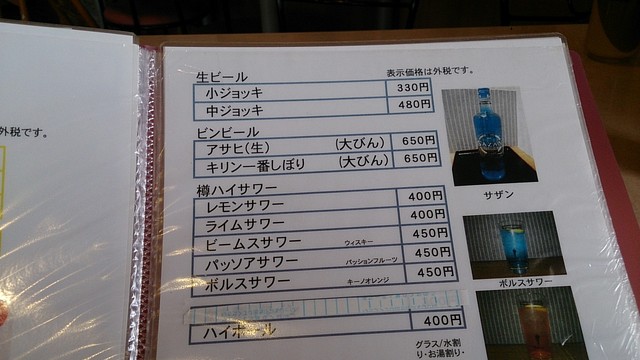 外税です。
表示価格は外税です。
生ビール
小ジョッキ 330円
中ジョッキ 480円
ビンビール
アサヒ(生) (大びん) 650円
キリン一番しぼり (大びん) 650円
樽ハイサワー
レモンサワー 400円
ライムサワー 400円
ビームスサワー ウィスキー 450円
パッソアサワー パッションフルーツ 450円
ボルスサワー キーノオレンジ 450円
ハイボール 400円
グラス/水割
り・お湯割り・
サザン
ボルスサワー